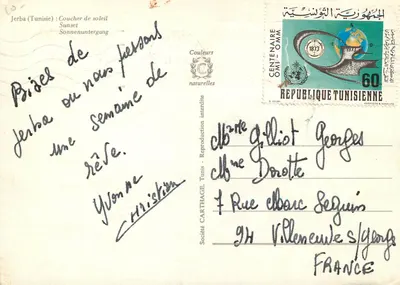 Jerba (Tunisie) : Coucher de soleil
Sunset
Sonnenuntergang
Bises de
jerba ou nous passons
une semaine de
rêve.
Yvonne
Christian
Couleurs
naturelles
Société CARTHAGE, Tunis - Reproduction interdite
الجمهورية التونسية
CENTENAIRE
OMI - OMM
1873
60
REPUBLIQUE TUNISIENNE
Mme Gilliot Georges
Mme Dorotte
7 Rue Marc Seguin
94 Villeneuve s/georges
FRANCE